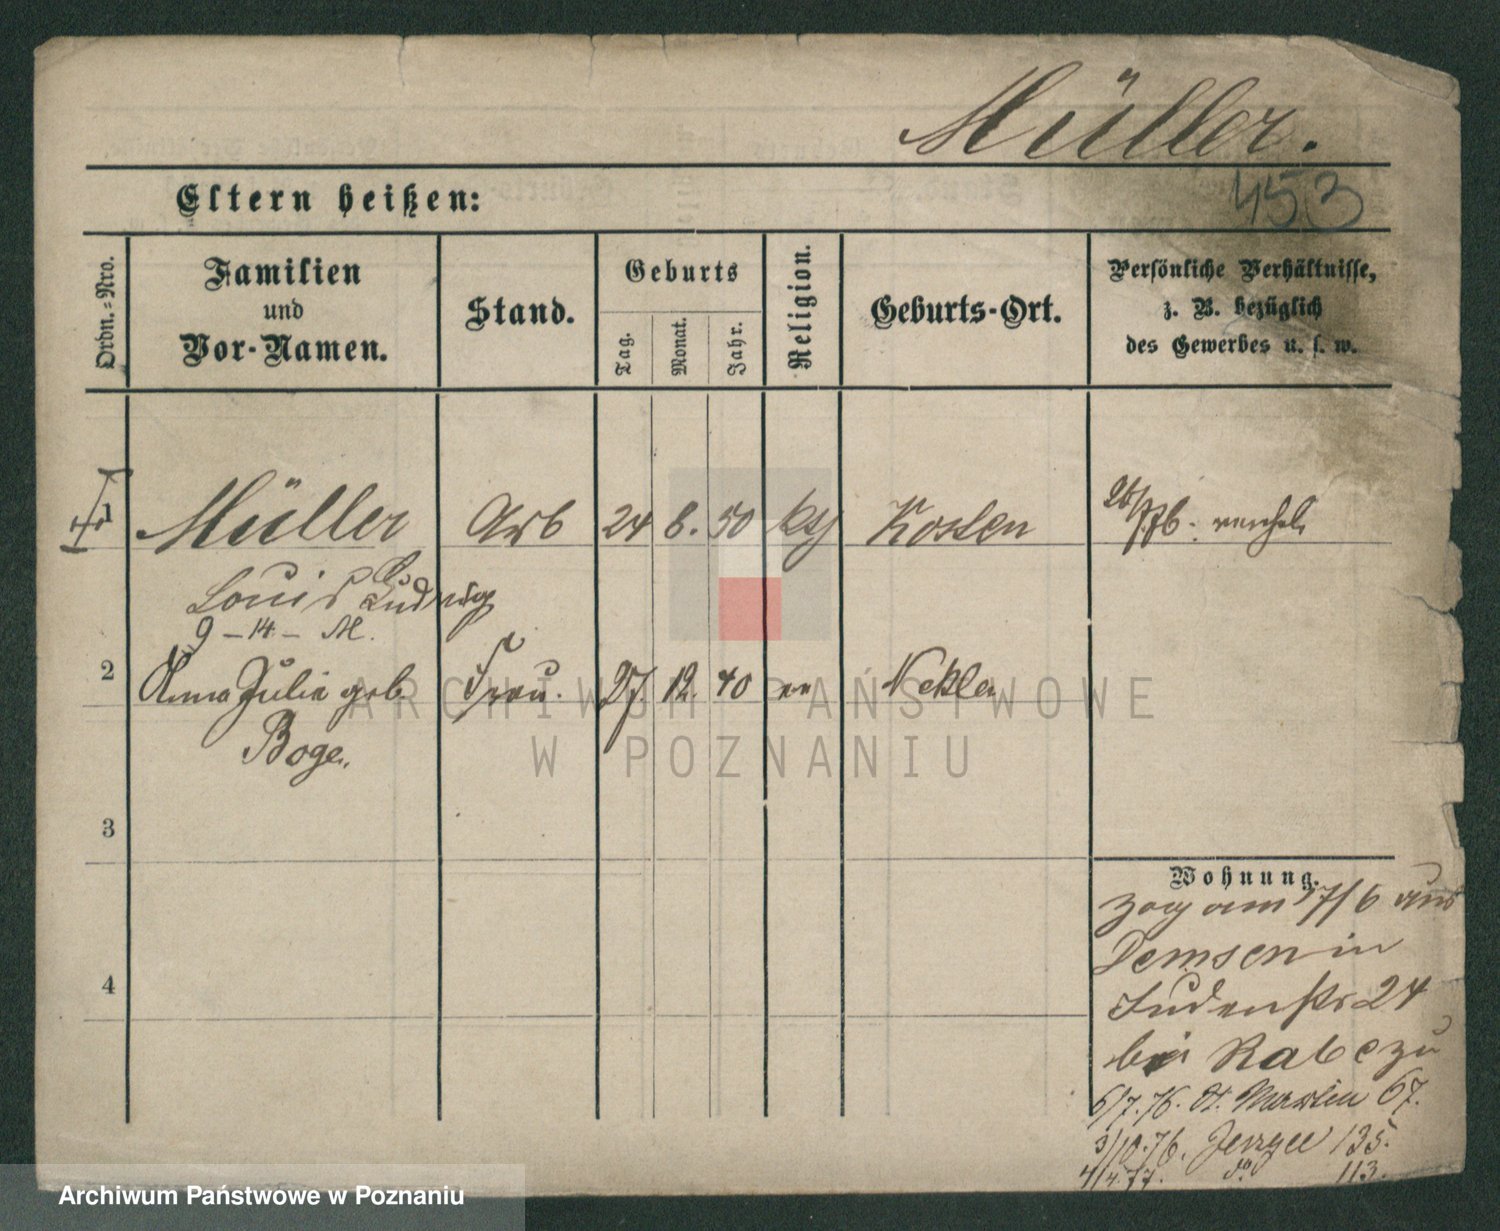 Müller.
453
Eltern heißen:
Ordn.-Nro.
Familien
und
Vor-Namen.
Stand.
Geburts
Tag.
Monat.
Jahr.
Religion.
Geburts-Ort.
Persönliche Verhältnisse,
z. B. bezüglich
des Gewerbes u. s. w.
1 Müller Arb 24 8. 50 Kth Kosten
Louis Ludwig
9 - 14 - M.
2 Anna Julia geb Frau. 27. 12. 40 ev Nekla
Boge.
3
4
Wohnung.
zog am 17/6 aus
Demsen in
Judenstr 24
bei Rabczu
6/7.76. St. Martin 67.
3/10.76. Jerzyce 135.
4/4.77. do 113.
ARCHIWUM PAŃSTWOWE
W POZNANIU
Archiwum Państwowe w Poznaniu